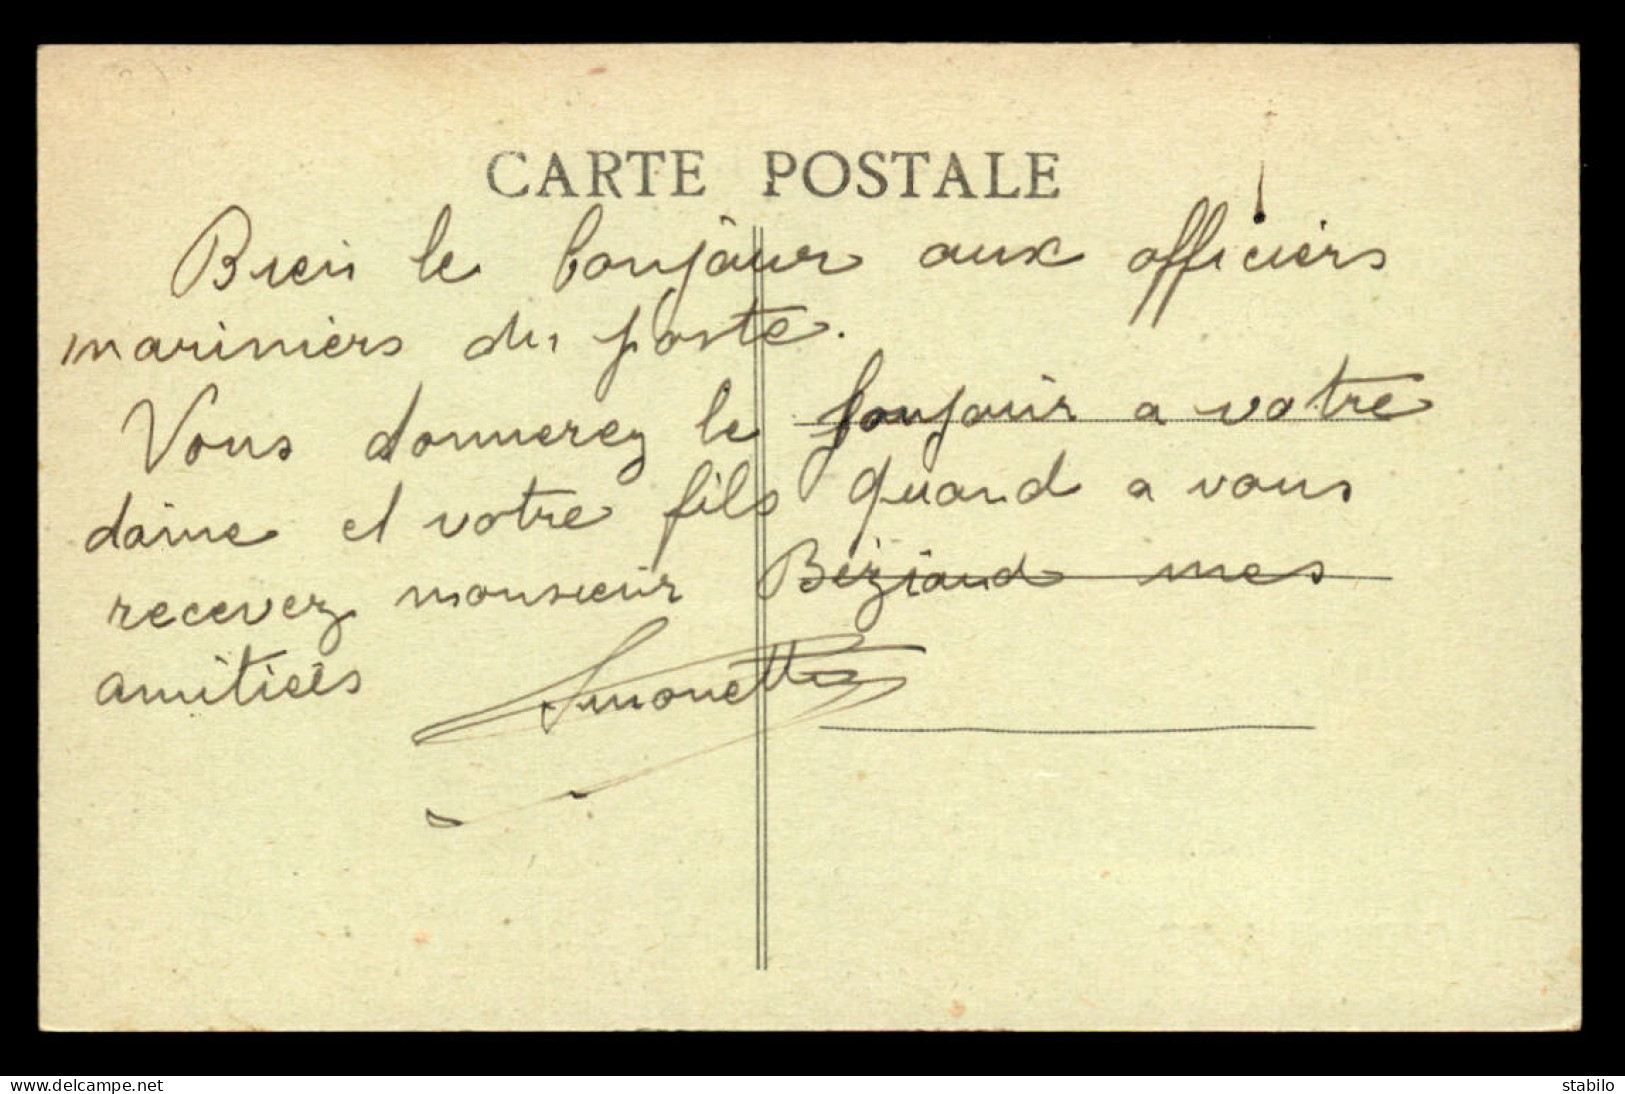 CARTE POSTALE
Bien le bonjour aux officiers
mariniers du poste.
Vous donnerez le bonjour a votre
dame et votre fils quand a vous
recevez monsieur Béziaud mes
amitiés Simonetti
delcampe.net
stabilo